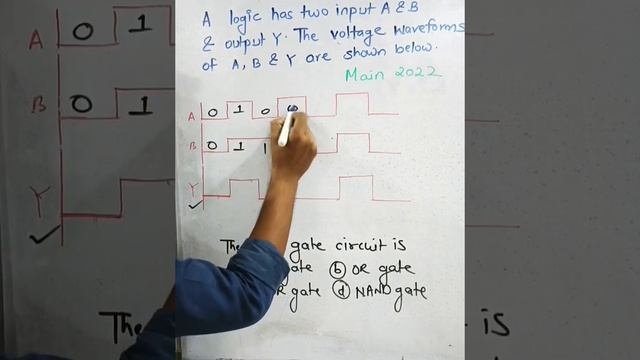 A logic has two input A & B
& output Y. The voltage waveforms
of A, B & Y are shown below.
Main 2022
A 0 1 0
B 0 1 1
Y
The gate circuit is
gate (b) OR gate
R gate (d) NAND gate
A 0 1
B 0 1
Y
The
is